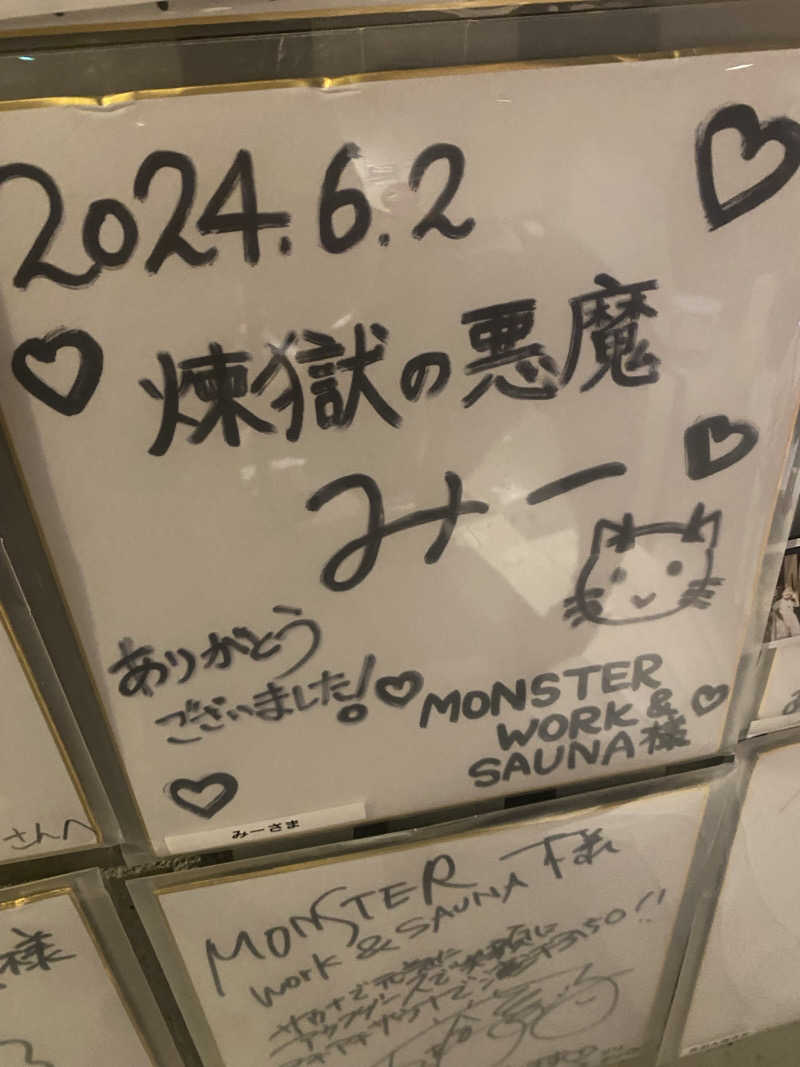 2024.6.2
煉獄の悪魔
みー
ありがとう
ございました!
MONSTER
WORK &
SAUNA様
みーさま
さんへ
様
MONSTER 様
WORK & SAUNA
サウナで元気に